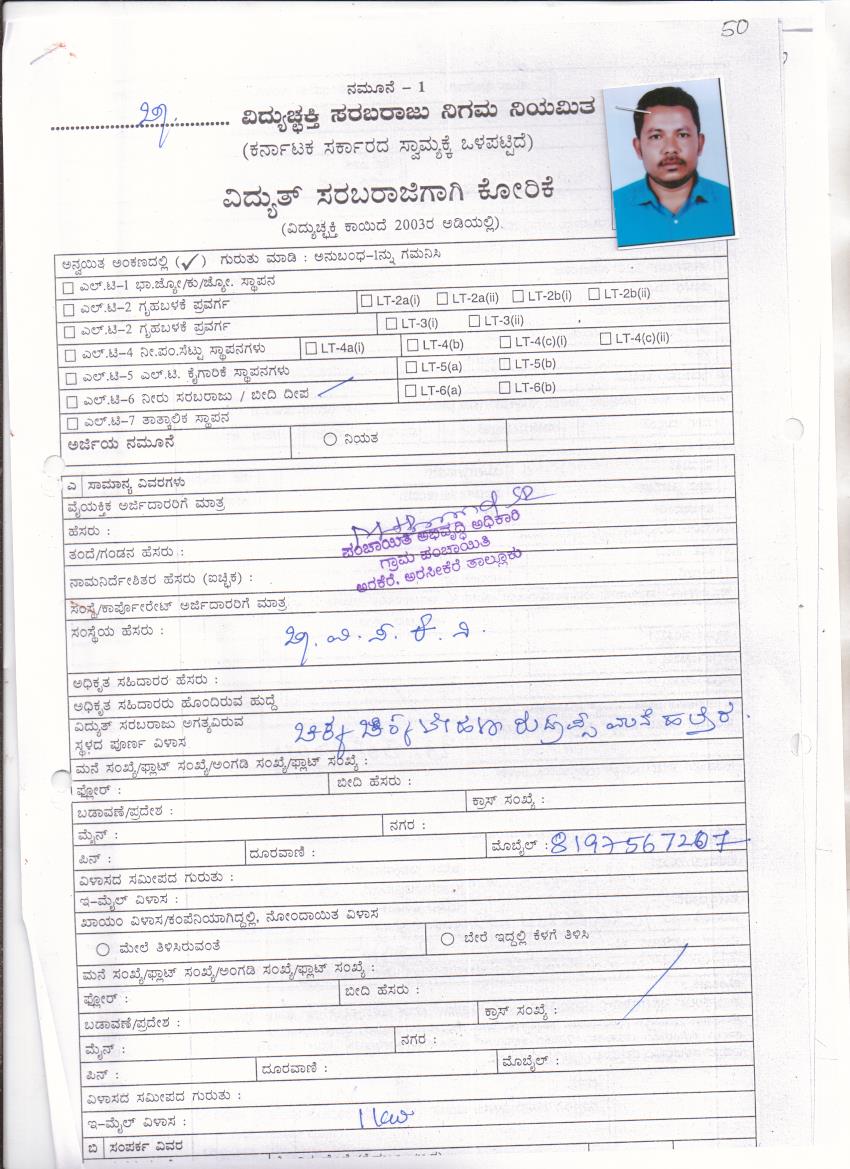 50
ನಮೂನೆ – 1
........................................ ವಿದ್ಯುಚ್ಛಕ್ತಿ ಸರಬರಾಜು ನಿಗಮ ನಿಯಮಿತ
(ಕರ್ನಾಟಕ ಸರ್ಕಾರದ ಸ್ವಾಮ್ಯಕ್ಕೆ ಒಳಪಟ್ಟಿದೆ)
ವಿದ್ಯುತ್ ಸರಬರಾಜಿಗಾಗಿ ಕೋರಿಕೆ
(ವಿದ್ಯುಚ್ಛಕ್ತಿ ಕಾಯಿದೆ 2003ರ ಅಡಿಯಲ್ಲಿ)
ಅನ್ವಯಿತ ಅಂಕಣದಲ್ಲಿ (✓) ಗುರುತು ಮಾಡಿ : ಅನುಬಂಧ–1ನ್ನು ಗಮನಿಸಿ
ಎಲ್.ಟಿ–1 ಭಾ.ಜ್ಯೋ/ಕು/ಜ್ಯೋ. ಸ್ಥಾಪನ
ಎಲ್.ಟಿ–2 ಗೃಹಬಳಕೆ ಪ್ರವರ್ಗ LT-2a(i) LT-2a(ii) LT-2b(i) LT-2b(ii)
ಎಲ್.ಟಿ–2 ಗೃಹಬಳಕೆ ಪ್ರವರ್ಗ LT-3(i) LT-3(ii)
ಎಲ್.ಟಿ–4 ನೀ.ಪಂ.ಸೆಟ್ಟು ಸ್ಥಾಪನಗಳು LT-4a(i) LT-4(b) LT-4(c)(i) LT-4(c)(ii)
ಎಲ್.ಟಿ–5 ಎಲ್.ಟಿ. ಕೈಗಾರಿಕೆ ಸ್ಥಾಪನಗಳು LT-5(a) LT-5(b)
ಎಲ್.ಟಿ–6 ನೀರು ಸರಬರಾಜು / ಬೀದಿ ದೀಪ LT-6(a) LT-6(b)
ಎಲ್.ಟಿ–7 ತಾತ್ಕಾಲಿಕ ಸ್ಥಾಪನ
ಅರ್ಜಿಯ ನಮೂನೆ ನಿಯತ
ಎ ಸಾಮಾನ್ಯ ವಿವರಗಳು
ವೈಯಕ್ತಿಕ ಅರ್ಜಿದಾರರಿಗೆ ಮಾತ್ರ
ಹೆಸರು :
ಪಂಚಾಯಿತಿ ಅಭಿವೃದ್ಧಿ ಅಧಿಕಾರಿ
ತಂದೆ/ಗಂಡನ ಹೆಸರು :
ಗ್ರಾಮ ಪಂಚಾಯಿತಿ
ನಾಮನಿರ್ದೇಶಿತರ ಹೆಸರು (ಐಚ್ಛಿಕ) :
ಅರಕೆರೆ, ಅರಸೀಕೆರೆ ತಾಲ್ಲೂಕು
ಸಂಸ್ಥೆ/ಕಾರ್ಪೋರೇಟ್ ಅರ್ಜಿದಾರರಿಗೆ ಮಾತ್ರ
ಸಂಸ್ಥೆಯ ಹೆಸರು :
ಅಧಿಕೃತ ಸಹಿದಾರರ ಹೆಸರು :
ಅಧಿಕೃತ ಸಹಿದಾರರು ಹೊಂದಿರುವ ಹುದ್ದೆ
ವಿದ್ಯುತ್ ಸರಬರಾಜು ಅಗತ್ಯವಿರುವ
ಸ್ಥಳದ ಪೂರ್ಣ ವಿಳಾಸ
ಮನೆ ಸಂಖ್ಯೆ/ಫ್ಲಾಟ್ ಸಂಖ್ಯೆ/ಅಂಗಡಿ ಸಂಖ್ಯೆ/ಫ್ಲಾಟ್ ಸಂಖ್ಯೆ :
ಫ್ಲೋರ್ : ಬೀದಿ ಹೆಸರು :
ಬಡಾವಣೆ/ಪ್ರದೇಶ : ಕ್ರಾಸ್ ಸಂಖ್ಯೆ :
ಮೈನ್ : ನಗರ :
ಪಿನ್ : ದೂರವಾಣಿ : ಮೊಬೈಲ್ : 8197567207
ವಿಳಾಸದ ಸಮೀಪದ ಗುರುತು :
ಇ–ಮೈಲ್ ವಿಳಾಸ :
ಖಾಯಂ ವಿಳಾಸ/ಕಂಪೆನಿಯಾಗಿದ್ದಲ್ಲಿ, ನೋಂದಾಯಿತ ವಿಳಾಸ
ಮೇಲೆ ತಿಳಿಸಿರುವಂತೆ ಬೇರೆ ಇದ್ದಲ್ಲಿ ಕೆಳಗೆ ತಿಳಿಸಿ
ಮನೆ ಸಂಖ್ಯೆ/ಫ್ಲಾಟ್ ಸಂಖ್ಯೆ/ಅಂಗಡಿ ಸಂಖ್ಯೆ/ಫ್ಲಾಟ್ ಸಂಖ್ಯೆ :
ಫ್ಲೋರ್ : ಬೀದಿ ಹೆಸರು :
ಬಡಾವಣೆ/ಪ್ರದೇಶ : ಕ್ರಾಸ್ ಸಂಖ್ಯೆ :
ಮೈನ್ : ನಗರ :
ಪಿನ್ : ದೂರವಾಣಿ : ಮೊಬೈಲ್ :
ವಿಳಾಸದ ಸಮೀಪದ ಗುರುತು :
ಇ–ಮೈಲ್ ವಿಳಾಸ :
ಬಿ ಸಂಪರ್ಕ ವಿವರ